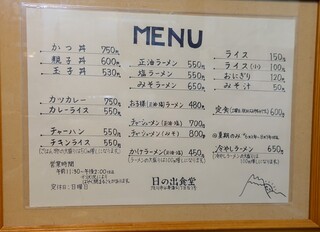 MENU
かつ丼 750円
親子丼 600円
玉子丼 530円
カツカレー 750円
カレーライス 550円
チャーハン 550円
チキンライス 550円
営業時間
定休日:日曜日
正油ラーメン 550円
塩ラーメン 550円
みそラーメン 650円
お子様(正油・塩)ラーメン 480円
チャーシューメン(正油・塩) 700円
チャーシューメン(みそ) 800円
かけラーメン(正油・塩) 450円
日の出食堂
ライス 150円
ライス(小) 100円
おにぎり 120円
みそ汁 50円
定食 600円
冷やしラーメン 650円